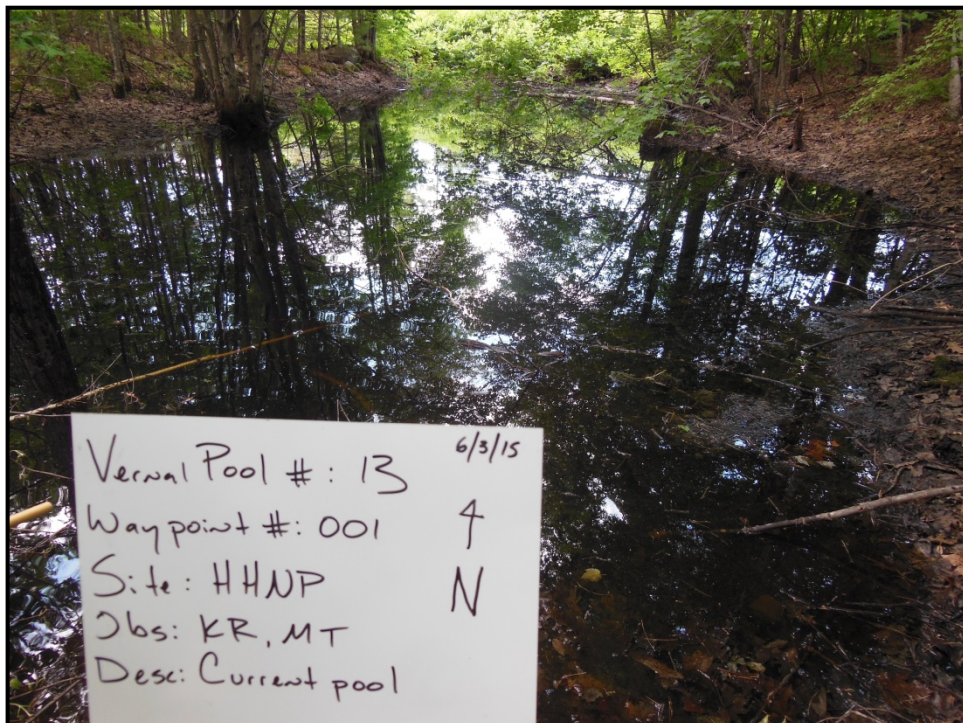 6/3/15
Vernal Pool #: 13
Waypoint #: 001
Site: HHNP
N
Obs: KR, MT
Desc: Current pool